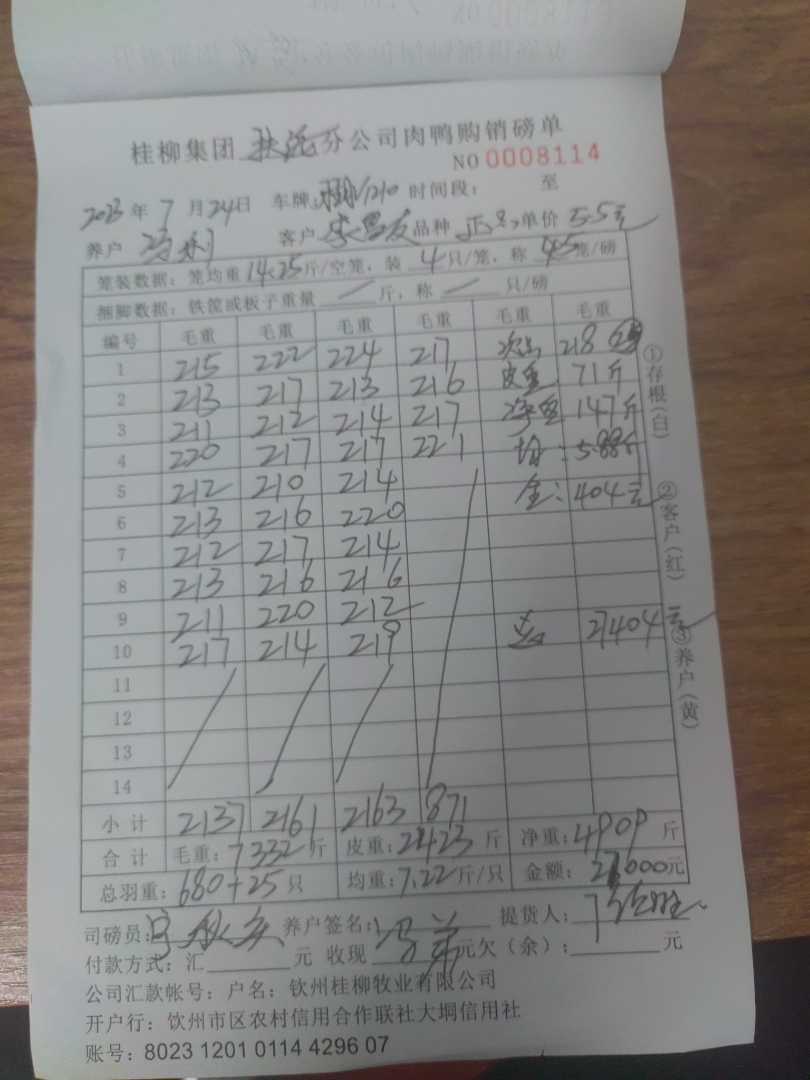 桂柳集团 分公司肉鸭购销磅单
NO 0008114
2023 年 7 月 24 日 车牌: 1210 时间段: 至
养户 冯利 客户 李昌友 品种 正 单价 5.5元
笼装数据: 笼均重 14.25 斤/空笼, 装 4 只/笼, 称 4-5 笼/磅
捆脚数据: 铁筐或板子重量 / 斤, 称 / 只/磅
编号 毛重 毛重 毛重 毛重 毛重 毛重
1 215 222 224 217 次品 218
2 213 217 213 216 皮重 71斤
3 211 212 214 217 净重 147斤
4 220 217 217 221 均: 5.88斤
5 212 210 214 金: 404元
6 213 216 220
7 212 217 214
8 213 216 216
9 211 220 212 27404元
10 217 214 219
11
12
13
14
小计 2137 2161 2163 871
合计 毛重: 7332 斤 皮重: 2423 斤 净重: 4909 斤
总羽重: 680+25 只 均重: 7.22 斤/只 金额: 27000元
司磅员: 养户签名: 提货人:
付款方式: 汇 元 收现 元欠(余): 元
公司汇款帐号: 户名: 钦州桂柳牧业有限公司
开户行: 钦州市区农村信用合作联社大垌信用社
账号: 8023 1201 0114 4296 07
①存根(白)
②客户(红)
③养户(黄)